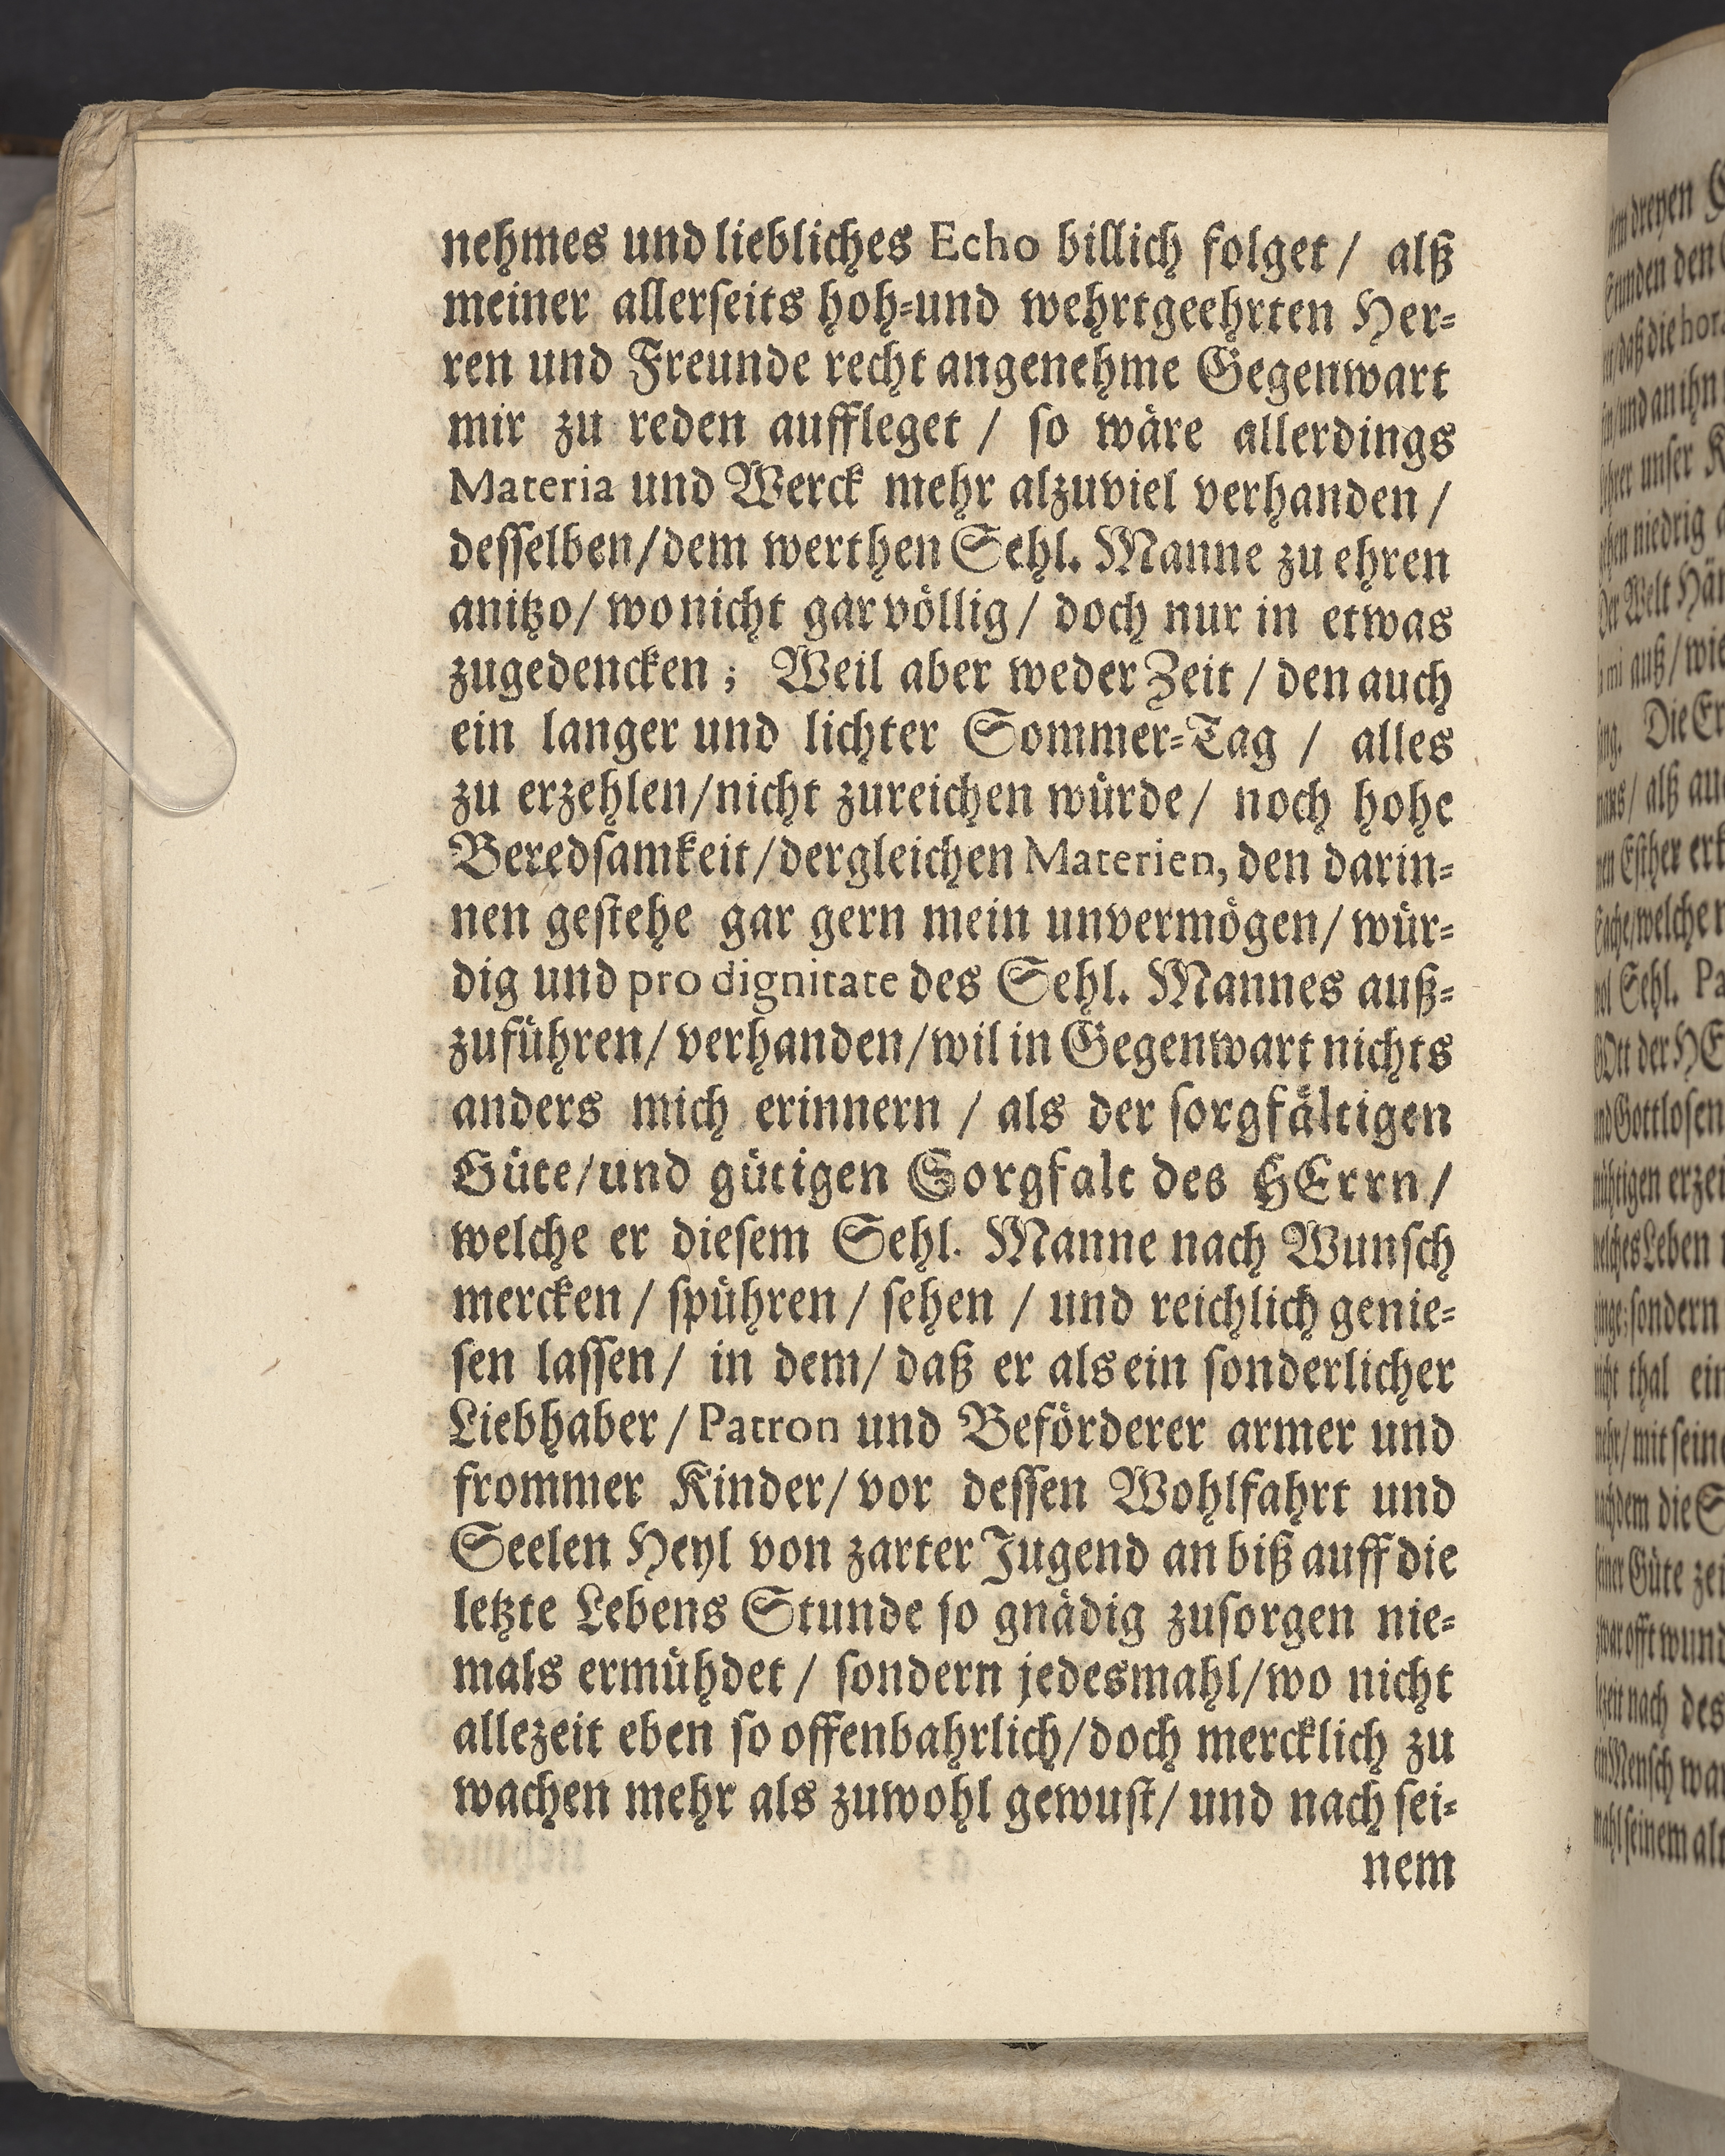 nehmes und liebliches Echo billich folget / alß
meiner allerseits hoh-und wehrtgeehrten Her-
ren und Freunde recht angenehme Gegenwart
mir zu reden auffleget / so wäre allerdings
Materia und Werck mehr alzuviel verhanden /
desselben/dem werthen Sehl. Manne zu ehren
anitzo/ wo nicht gar völlig/ doch nur in etwas
zugedencken; Weil aber weder Zeit / den auch
ein langer und lichter Sommer-Tag / alles
zu erzehlen/nicht zureichen würde/ noch hohe
Beredsamkeit/dergleichen Materien, den darin-
nen gestehe gar gern mein unvermögen/ wür-
dig und pro dignitate des Sehl. Mannes auß-
zuführen/ verhanden/wil in Gegenwart nichts
anders mich erinnern / als der sorgfältigen
Güte/und gütigen Sorgfalt des HErrn/
welche er diesem Sehl. Manne nach Wunsch
mercken / spühren / sehen / und reichlich genie-
sen lassen/ in dem/ daß er als ein sonderlicher
Liebhaber / Patron und Beförderer armer und
frommer Kinder/ vor dessen Wohlfahrt und
Seelen Heyl von zarter Jugend an biß auff die
letzte Lebens Stunde so gnädig zusorgen nie-
mals ermühdet / sondern jedesmahl/wo nicht
allezeit eben so offenbahrlich/doch mercklich zu
wachen mehr als zuwohl gewust/ und nach sei-
nem